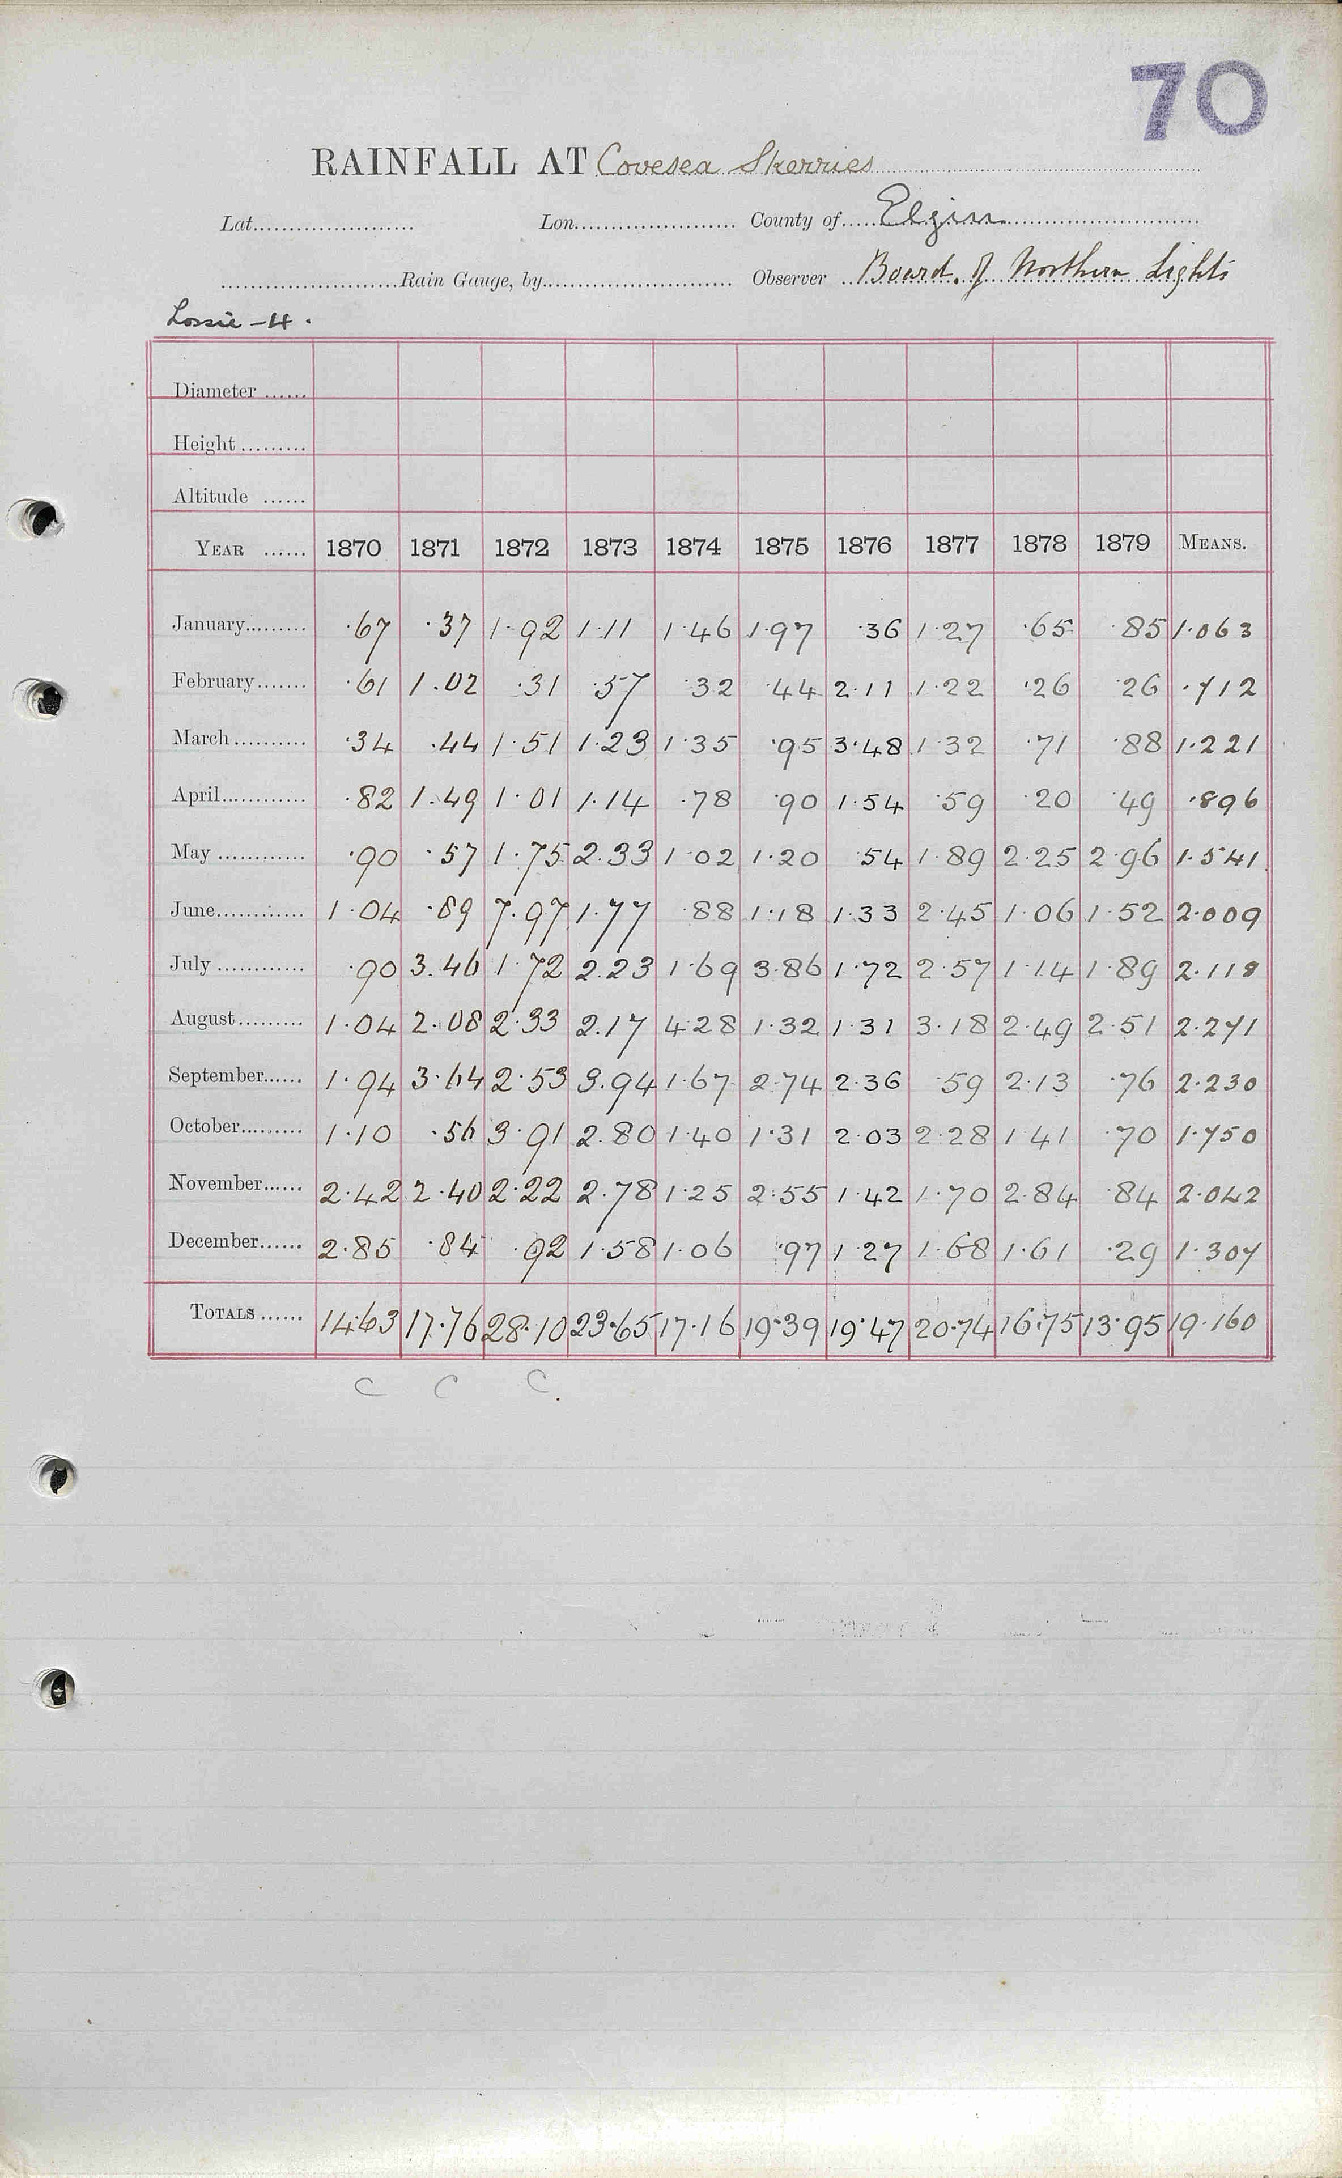 70
RAINFALL AT Covesea Skerries
Lat. Lon. County of Elgin
Rain Gauge, by Observer Board of Northern Lights
Lossie - H.
Diameter
Height
Altitude
YEAR 1870 1871 1872 1873 1874 1875 1876 1877 1878 1879 MEANS.
January .67 .37 1.92 1.11 1.46 1.97 .36 1.27 .65 .85 1.063
February .61 1.02 .31 .57 .32 .44 2.11 1.22 .26 .26 .712
March .34 .44 1.51 1.23 1.35 .95 3.48 1.32 .71 .88 1.221
April .82 1.49 1.01 1.14 .78 .90 1.54 .59 .20 .49 .896
May .90 .57 1.75 2.33 1.02 1.20 .54 1.89 2.25 2.96 1.541
June 1.04 .89 7.97 1.77 .88 1.18 1.33 2.45 1.06 1.52 2.009
July .90 3.46 1.72 2.23 1.69 3.86 1.72 2.57 1.14 1.89 2.118
August 1.04 2.08 2.33 2.17 4.28 1.32 1.31 3.18 2.49 2.51 2.271
September 1.94 3.64 2.53 3.94 1.67 2.74 2.36 .59 2.13 .76 2.230
October 1.10 .56 3.91 2.80 1.40 1.31 2.03 2.28 1.41 .70 1.750
November 2.42 2.40 2.22 2.78 1.25 2.55 1.42 1.70 2.84 .84 2.042
December 2.85 .84 .92 1.58 1.06 .97 1.27 1.68 1.61 .29 1.307
TOTALS 14.63 17.76 28.10 23.65 17.16 19.39 19.47 20.74 16.75 13.95 19.160
C C C.